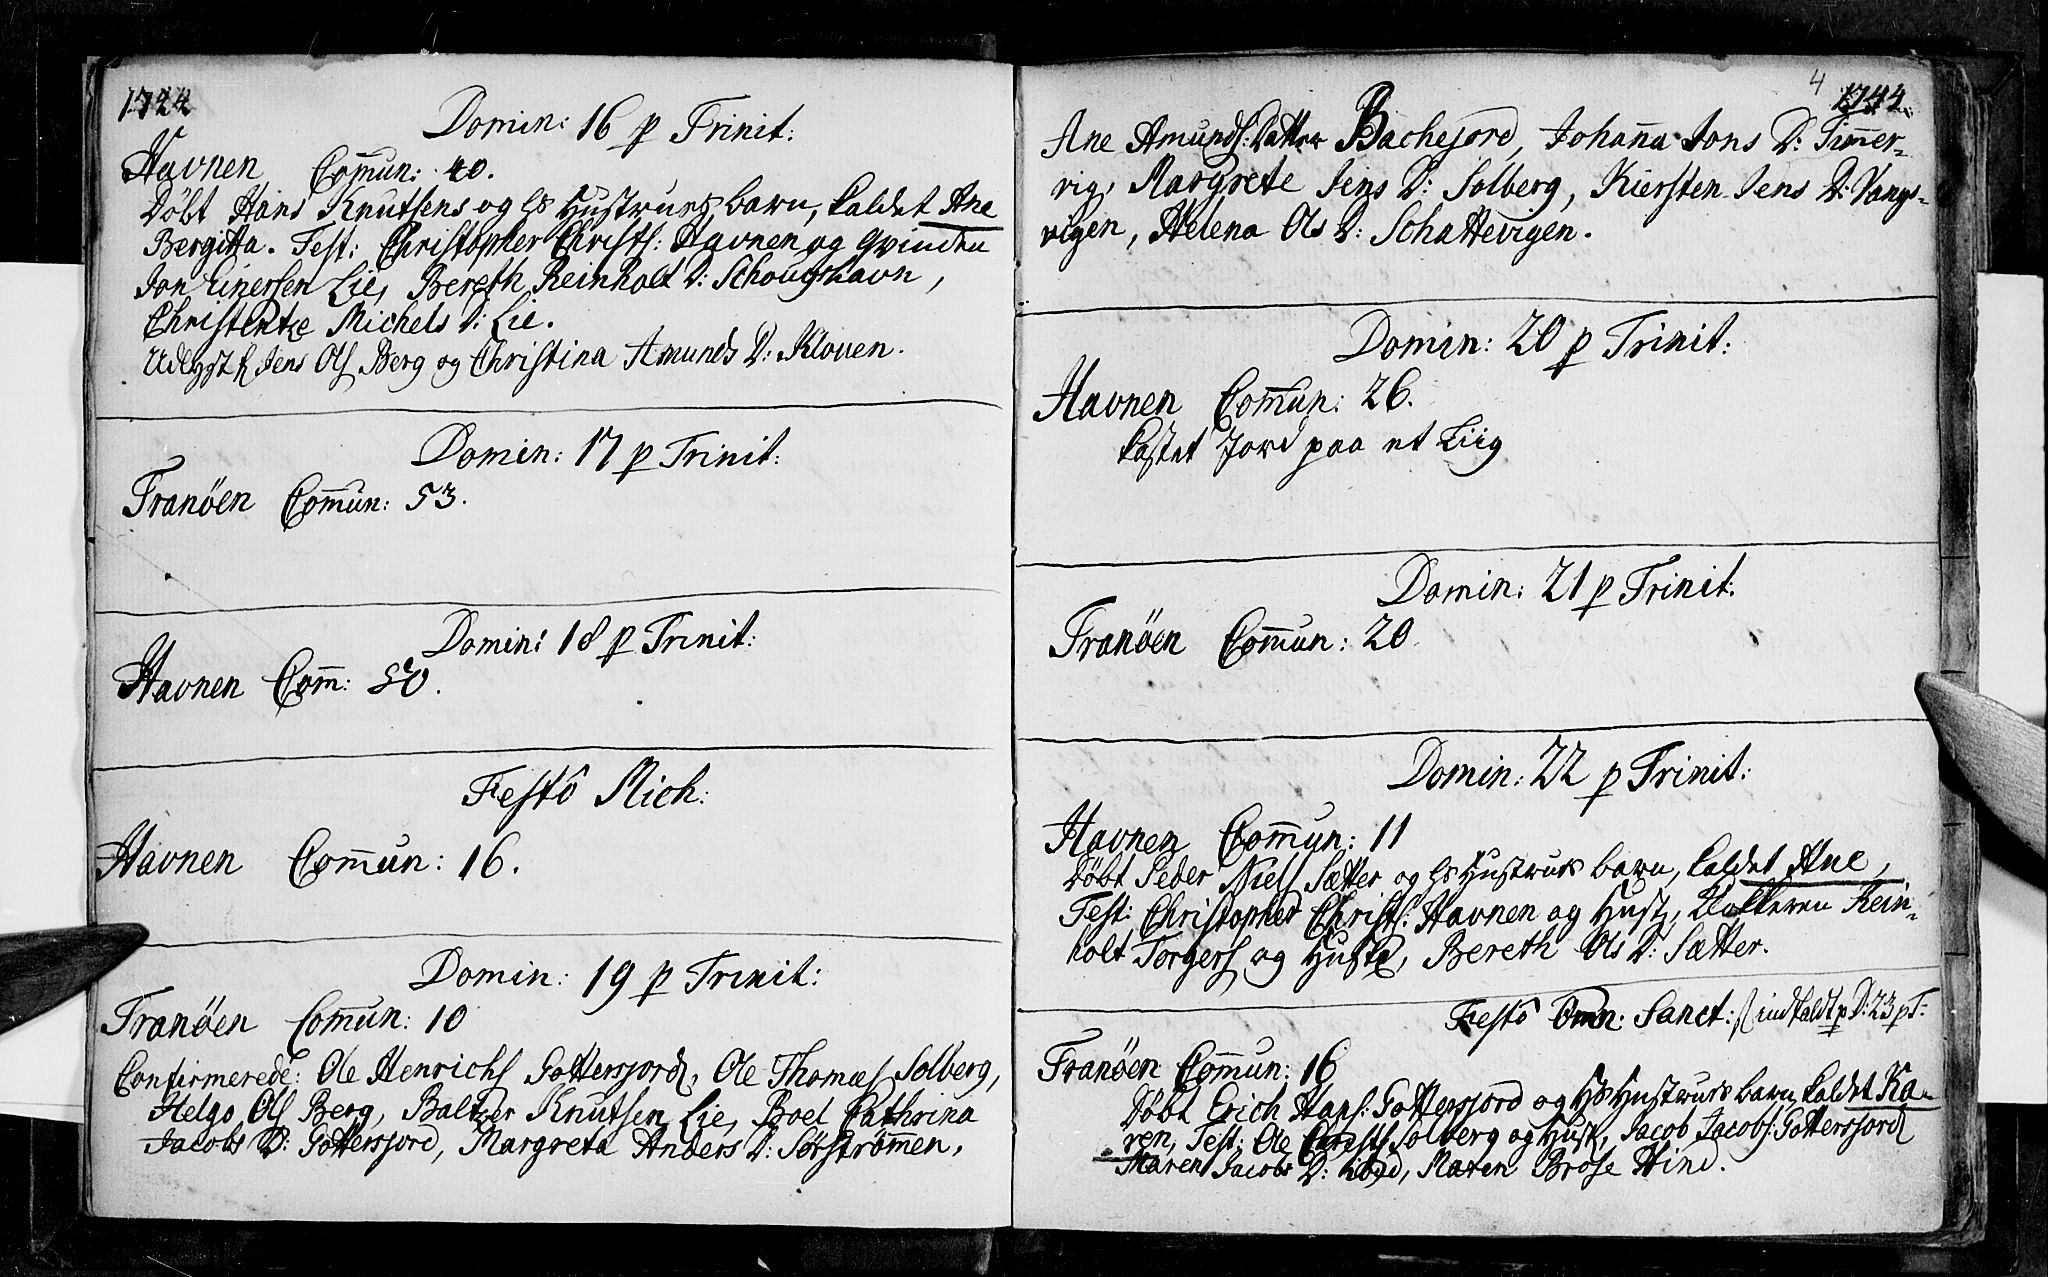 1744
Domin: 16 p Trinit:
Havnen Com̄un: 40.
Døbt Hans Knutsens og hs Hustrues barn, kaldet Ane
Bergitta. Test: Christopher Christs: Havnen og Qvinden
Jon Einersen Lie, Bereth Reinholt D: Schougshavn,
Christentze Michels D: Lie.
Udlyst Jens Ols Berg og Christina Amunds D: Kloven.
Domin: 17 p Trinit:
Tranöen Com̄un: 53.
Domin: 18 p Trinit:
Havnen Com̄: 50.
Festô Mich:
Havnen Com̄un: 16.
Domin: 19 p Trinit:
Tranöen Com̄un: 10
Confirmerede: Ole Henrichs Gottersjord, Ole Thomæs Solberg,
Helgo Ols Berg, Baltzer Knutsen Lie, Boel Cathrina
Jacobs D: Gottersjord, Margreta Anders D: Sørströmen,
4 1744
Ane Amunds: Datter Bachejord, Johan̄a Jons D: Tim̄er-
vig, Margrete Jens D: Solberg, Kiersten Jens D: Vangs-
vigen, Helena Ols D: Schattevigen.
Domin: 20 p Trinit:
Havnen Com̄un: 26.
kastet Jord paa et Liig
Domin: 21 p Trinit:
Tranöen Com̄un: 20
Domin: 22 p Trinit:
Havnen Com̄un: 11
Døbt Peder Niels Sætter og hs Hustrues barn, kaldet Ane,
Test: Christopher Christs: Havnen og Hust, Klokkeren Rein-
holt Torgers og Hust, Bereth Ols D: Sætter.
Festô Omn: Sanct: indfaldt p D: 23 p T:
Tranöen Com̄un: 16
Døbt Erich Hans: Gottersjord og Hs Hustrues barn kaldet Ka-
ren, Test: Ole Christs Solberg og Hust, Jacob Jacobs: Gottersjord
Maren Jacobs D: ibid, Maren Brose Hind.